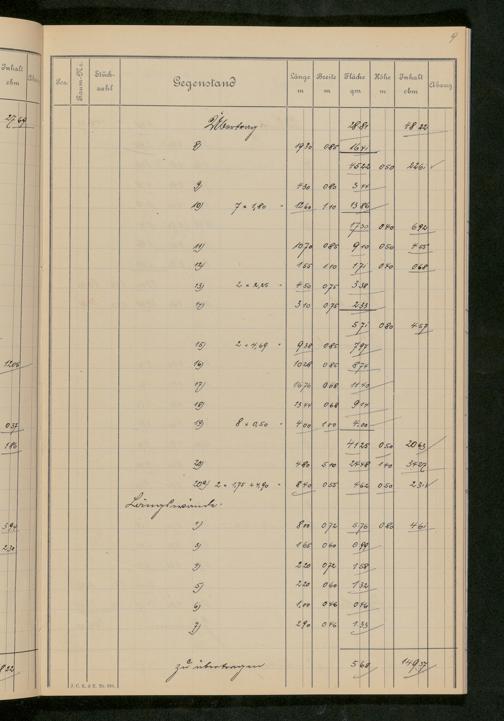 Inhalt
cbm
27 69
1206
037
186
594
230
822
9
Pos.
Raum-No.
Stück-
zahl
Gegenstand
Länge
m
Breite
m
Fläche
qm
Höhe
m
Inhalt
cbm
Abzug
Übertrag 2881 4822
8) 1930 085 1641
4522 050 2261
9) 430 080 344
10) 7 × 1,80 = 1260 110 1386
1730 040 692
11) 1070 085 910 050 455
12) 155 110 171 040 068
13) 2 × 2,25 = 450 075 338
14) 310 075 233
571 080 457
15) 2 × 4,69 = 938 085 797
16) 1028 085 874
17) 1676 068 1140
18) 1344 068 914
19) 8 × 0,50 = 400 100 400
4125 050 2063
20) 480 510 2448 140 3427
20a) 2 × 1,75 + 4,90 = 840 055 462 050 231
Längswände.
1) 800 072 576 080 461
3) 165 060 099
220 072 158
5) 220 060 132
6) 1,00 046 046
7) 290 046 133
zu übertragen 568 14937
J. C. K. & E. Nr. 891.